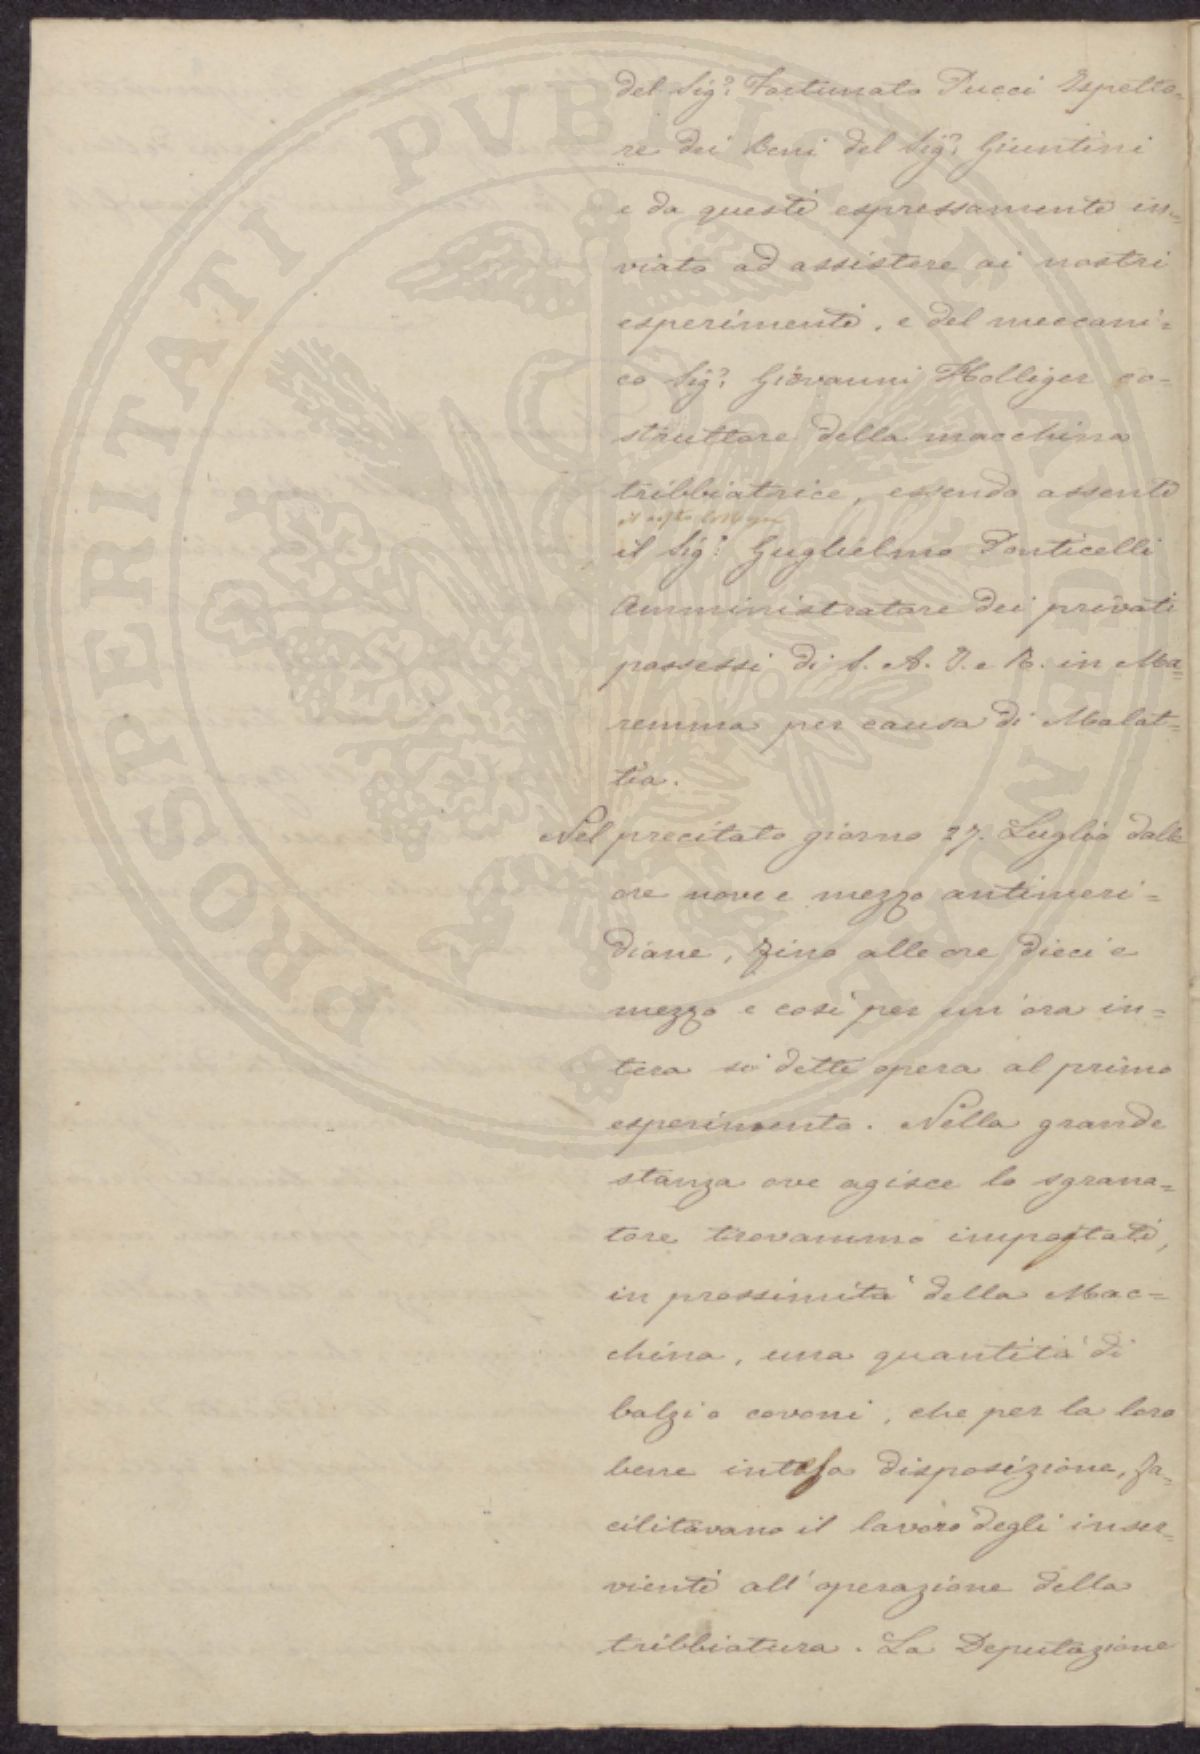 del Sig.r Fortunato Pucci Ispetto-
re dei Beni del Sig.r Giuntini
e da questi espressamente in-
viato ad assistere ai nostri
esperimenti, e del meccani-
co Sig.r Giovanni Holliger co-
struttore della macchina
tribbiatrice, essendo assente
il Sig.r Guglielmo Ponticelli
Amministratore dei privati
possessi di S. A. I. e R. in Ma-
remma per causa di Malat-
tia.
Nel precitato giorno 27. Luglio dalle
ore nove e mezzo antimeri-
diane, fino alle ore dieci e
mezzo e così per un'ora in-
tera si dette opera al primo
esperimento. Nella grande
stanza ove agisce lo sgrana-
tore trovammo impostati,
in prossimità della Mac-
china, una quantità di
balzi o covoni, che per la loro
bene intesa disposizione, fa-
cilitavano il lavoro degli inser-
vienti all'operazione della
tribbiatura. La Deputazione
PROSPERITATI PVBLICAE AVGENDAE